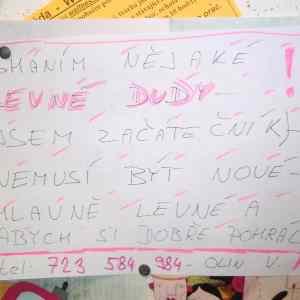 SHÁNÍM NĚJAKÉ
LEVNÉ DUDY - - !
JSEM ZAČÁTEČNÍK
NEMUSÍ BÝT NOVÉ -
HLAVNĚ LEVNÉ A
ABYCH SI DOBŘE POHRÁL
tel. 723 584 984 - OLIN V.